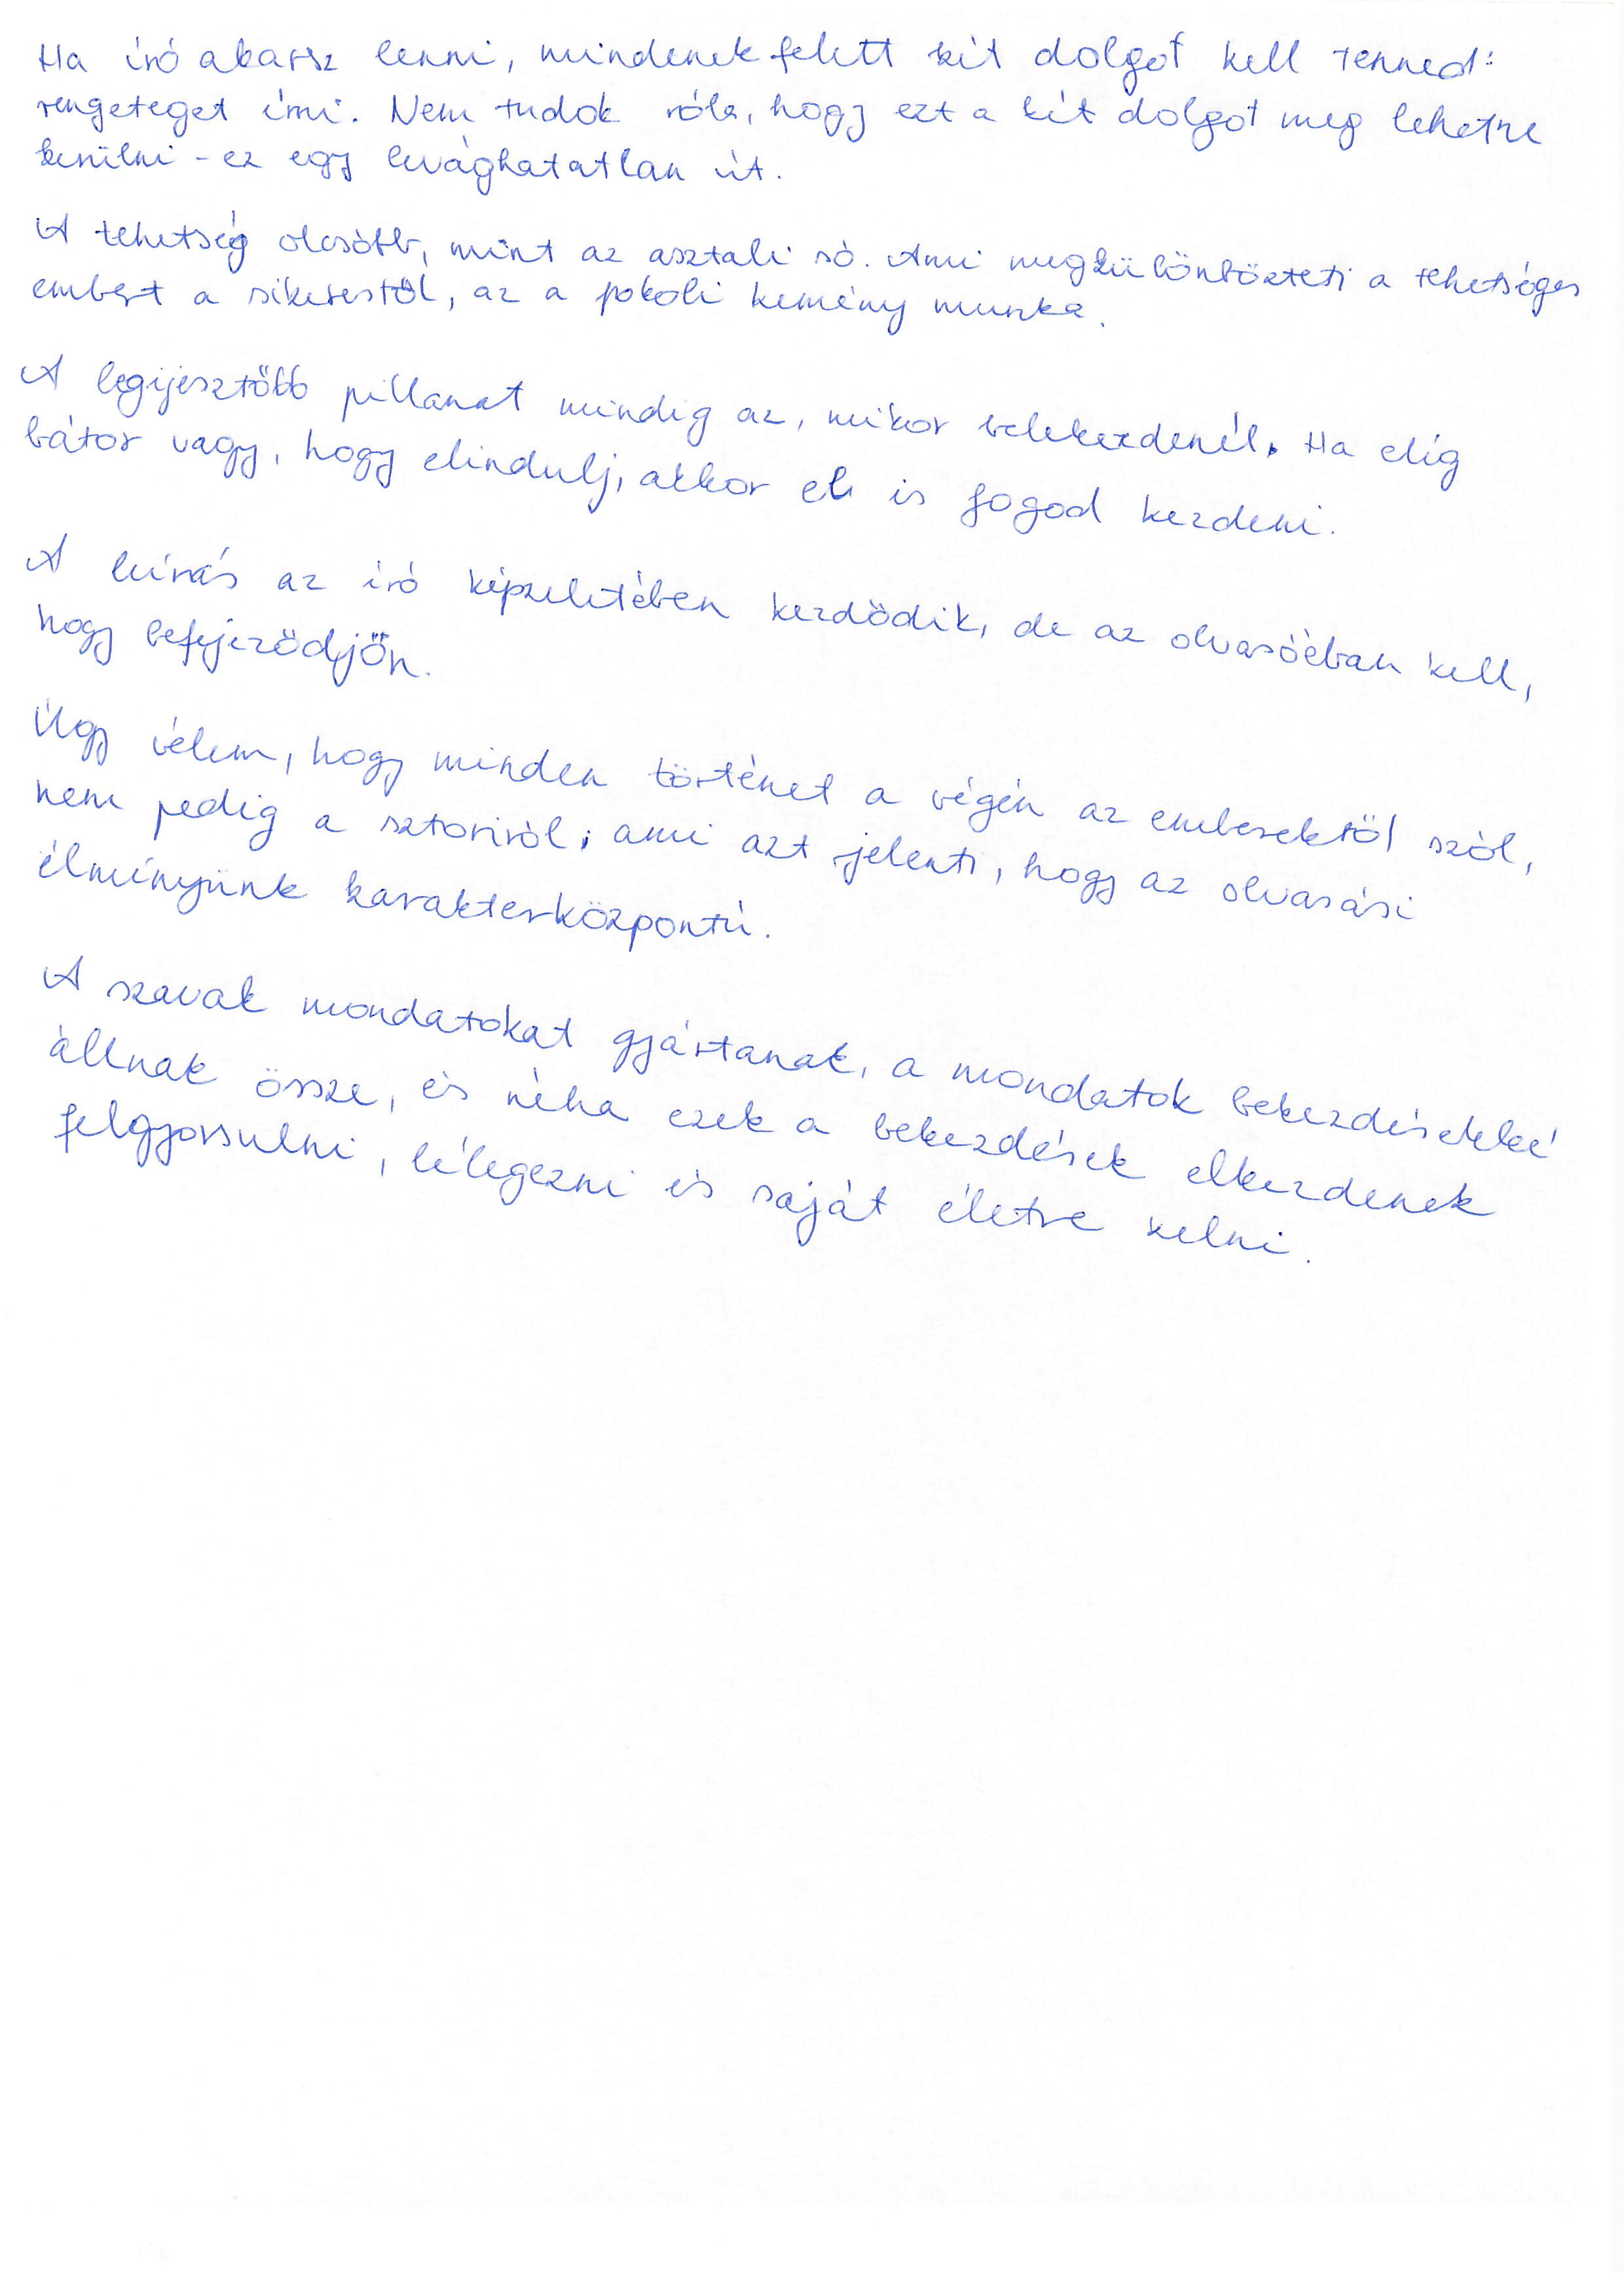 Ha író akarsz lenni, mindenek felett két dolgot kell tenned:
rengeteget írni. Nem tudok róla, hogy ezt a két dolgot meg lehetne
kerülni - ez egy levághatatlan út.
A tehetség olcsóbb, mint az asztali só. Ami megkülönbözteti a tehetséges
embert a sikerestől, az a pokoli kemény munka.
A legijesztőbb pillanat mindig az, mikor belekezdenél. Ha elég
bátor vagy, hogy elindulj, akkor el is fogod kezdeni.
A leírás az író képzeletében kezdődik, de az olvasóéban kell,
hogy befejeződjön.
Úgy vélem, hogy minden történet a végén az emberektől szól,
nem pedig a sztoriról, ami azt jelenti, hogy az olvasási
élményünk karakterközpontú.
A szavak mondatokat gyártanak, a mondatok bekezdésekké
állnak össze, és néha ezek a bekezdések elkezdenek
felgyorsulni, lélegezni és saját életre kelni.